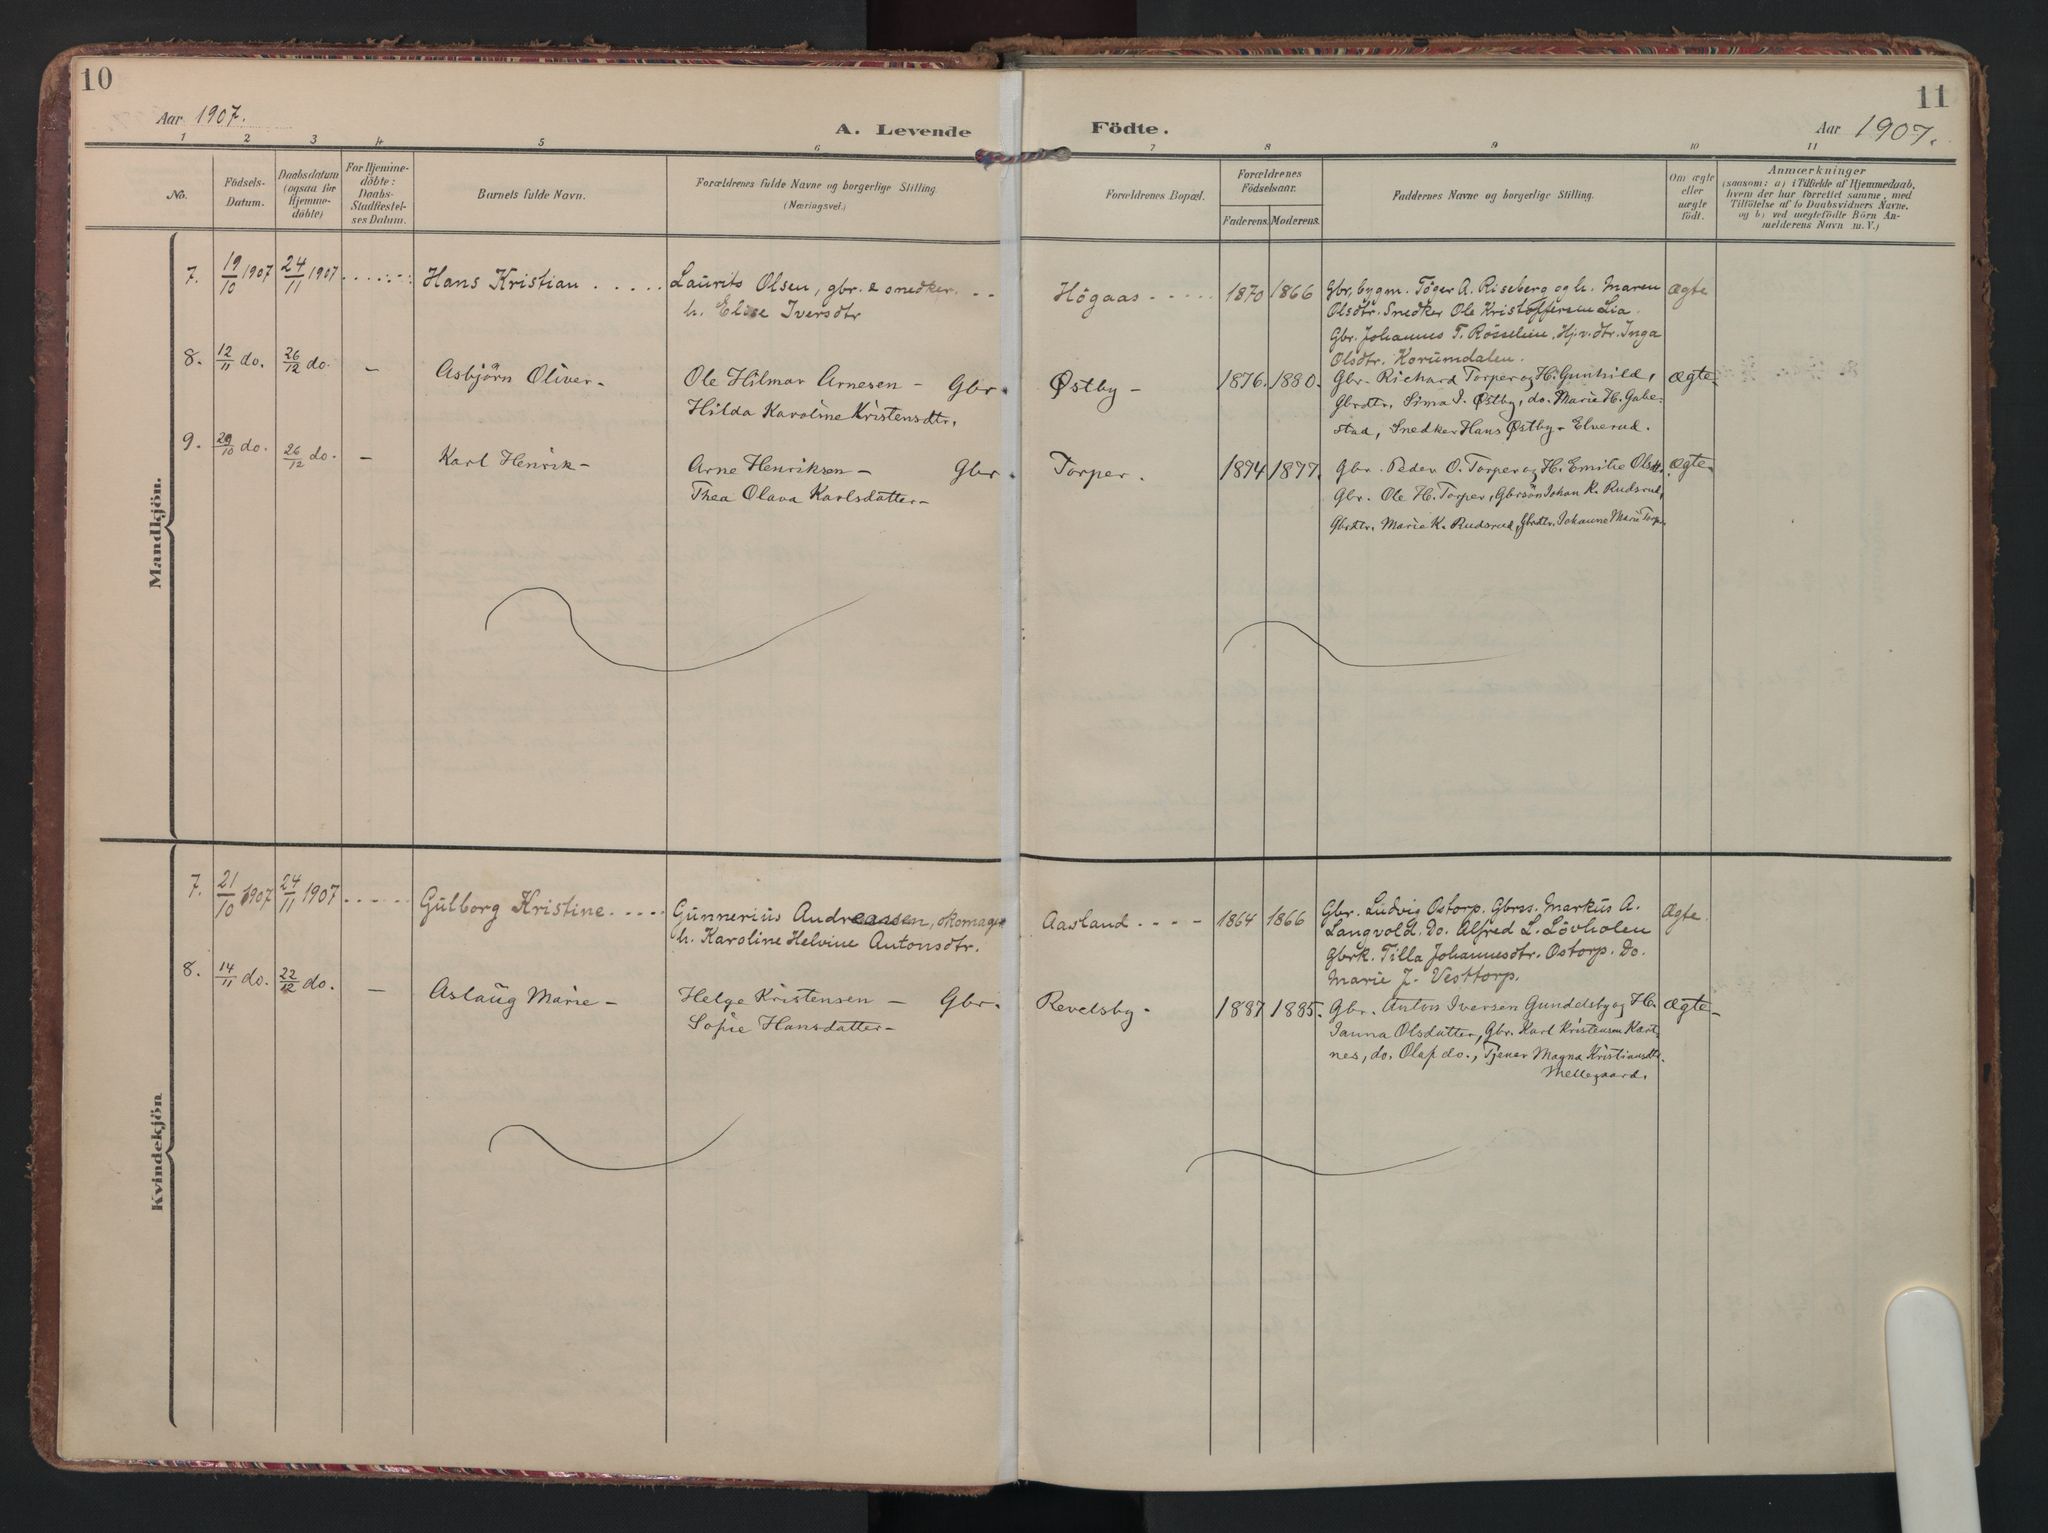 10
Aar 1907.
A. Levende
Födte.
Aar 1907.
11
1 2 3 4 5 6 7 8 9 10 11
No.
Födsels-
Datum.
Daabsdatum
(ogsaa for
Hjemme-
döbte)
For Hjemme-
döbte:
Daabs-
Stadfæstel-
ses Datum.
Barnets fulde Navn.
Forældrenes fulde Navne og borgerlige Stilling.
(Næringsvei.)
Forældrenes Bopæl.
Forældrenes
Födselsaar.
Faderens. Moderens.
Faddernes Navne og borgerlige Stilling.
Om ægte
eller
uægte
födt.
Anmærkninger
(saasom: a) i Tilfælde af Hjemmedaab,
hvem der har forrettet samme, med
Tilföielse af to Daabsvidners Navne.
og b) ved uægtefödte Börn An-
melderens Navn m. V.)
Mandkjön.
7. 19/10 1907 24/11 1907 Hans Kristian Laurits Olsen, gbr. & snedker. Högaas 1870 1866 Gbr., bygm. Töger A. Riseberg og h. Maren Ægte
h. Elise Iversdtr
Olsdtr. Snedker Ole Kristoffersen Lia.
Gbr. Johannes T. Rösseleim, Hj.v. dtr. Inga
Olsdtr. Korumdalen.
8. 12/11 do. 26/12 do. - Asbjörn Oliver - Ole Hilmar Arnesen - Gbr. Østby - 1876. 1880. Gbr. Richard Torper og H. Gunhild, Ægte -
Hilda Karoline Kristensdtr.
Gbrdtr. Sima I. Østby, do. Marie H. Gabe-
stad, Snedker Hans Østby - Elverud.
9. 29/10 do. 26/12 do. - Karl Henrik - Arne Henriksen - Gbr. Torper. 1874 1877. Gbr. Peder O. Torper og H. Emilie Olsdtr. Ægte -
Thea Olava Karlsdatter -
Gbr. Ole H. Torper, Gbrsön Johan K. Rudsrud,
Gbrdtr. Marie K. Rudsrud, Gbrdtr. Johanne Marie Torp.
Kvindekjön
7. 21/10 1907 24/11 1907 Gulborg Kristine Gunnerius Andreassen, skomager Aasland 1864 1866 Gbr. Ludvig Ostorp. Gbrss. Markus A. Ægte.
h. Karoline Helvine Antonsdtr.
Langvold. Do. Alfred L. Lövholen
Gbrk. Tilla Johannesdtr. Ostorp. Do.
Marie J. Vesttorp.
8. 14/11 do. 22/12 do. - Aslaug Marie - Helge Kristensen - Gbr. Revelsby - 1887 1885. Gbr. Anton Iversen Gunddsby og H. Ægte -
Sofie Hansdatter -
Janna Olsdatter, Gbr. Karl Kristensen Kært-
nes, do. Olaf do., Tjener Magna Kristiansdtr.
Mellegaard.